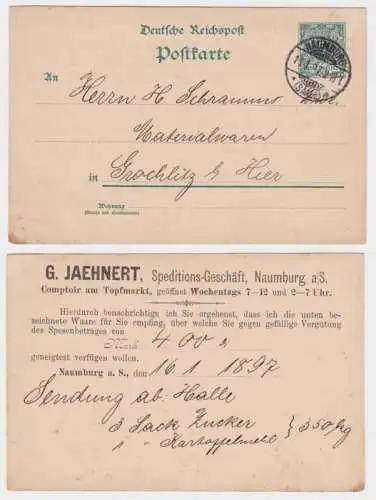 Deutsche Reichspost
Postkarte
NAUMBURG
(SAALE)
An
Herrn H. Schramms
Materialwaren
in Grochlitz b/ Hier
Wohnung
(Straße und Hausnummer)
G. JAEHNERT, Speditions-Geschäft, Naumburg a/S.
Comptoir am Topfmarkt, geöffnet Wochentags 7–12 und 2–7 Uhr.
Hierdurch benachrichtige ich Sie ergebenst, dass ich die unten be-
zeichnete Waare für Sie empfing, über welche Sie gegen gefällige Vergütung
des Spesenbetrages von
Mark 4.00
geneigtest verfügen wollen.
Naumburg a. S., den 16/1 1897
Sendung ab: Halle
3 Sack Zucker } 350 kg
1 " Kartoffelmehl